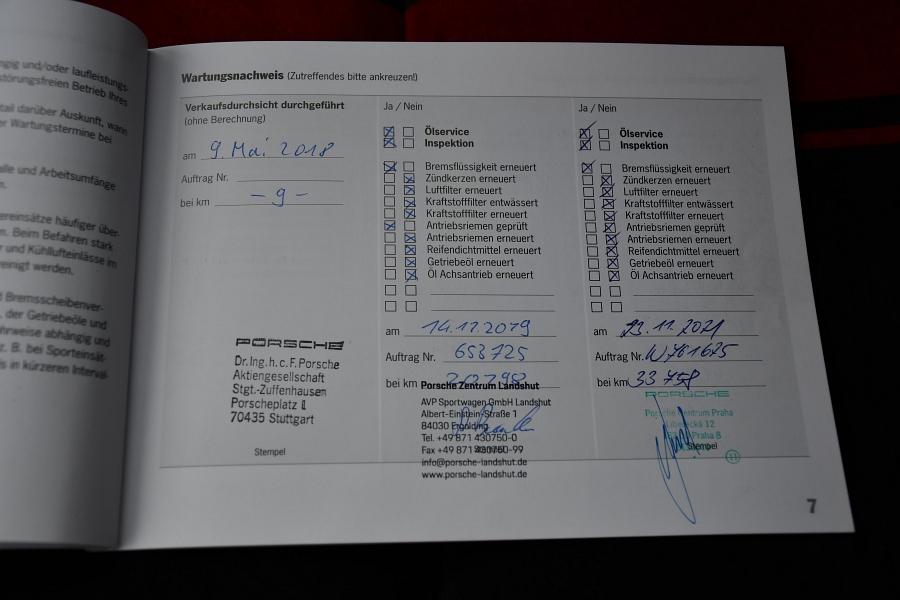 ngig und/oder laufleistungs-
störungsfreien Betrieb Ihres
tail darüber Auskunft, wann
er Wartungstermine bei
alle und Arbeitsumfänge
n.
ereinsätze häufiger über-
m. Beim Befahren stark
r und Kühllufteinlässe im
reinigt werden.
d Bremsscheibenver-
, der Getriebeöle und
hrweise abhängig und
z. B. bei Sporteinsät-
is in kürzeren Interval-
Wartungsnachweis (Zutreffendes bitte ankreuzen!)
Verkaufsdurchsicht durchgeführt
(ohne Berechnung)
am 9. Mai 2018
Auftrag Nr.
bei km – 9 –
PORSCHE
Dr. Ing. h. c. F. Porsche
Aktiengesellschaft
Stgt.-Zuffenhausen
Porscheplatz 1
70435 Stuttgart
Stempel
Ja / Nein
Ölservice
Inspektion
Bremsflüssigkeit erneuert
Zündkerzen erneuert
Luftfilter erneuert
Kraftstofffilter entwässert
Kraftstofffilter erneuert
Antriebsriemen geprüft
Antriebsriemen erneuert
Reifendichtmittel erneuert
Getriebeöl erneuert
Öl Achsantrieb erneuert
am 14.12.2019
Auftrag Nr. 653725
bei km
Porsche Zentrum Landshut
AVP Sportwagen GmbH Landshut
Albert-Einstein-Straße 1
84030 Ergolding
Tel. +49 871 430750-0
Fax +49 871 430750-99
Stempel
info@porsche-landshut.de
www.porsche-landshut.de
Ja / Nein
Ölservice
Inspektion
Bremsflüssigkeit erneuert
Zündkerzen erneuert
Luftfilter erneuert
Kraftstofffilter entwässert
Kraftstofffilter erneuert
Antriebsriemen geprüft
Antriebsriemen erneuert
Reifendichtmittel erneuert
Getriebeöl erneuert
Öl Achsantrieb erneuert
am 23.11.2021
Auftrag Nr. W761675
bei km 33 758
PORSCHE
Porsche Zentrum Praha
Liberecká 12
Praha 8
Stempel
11
7